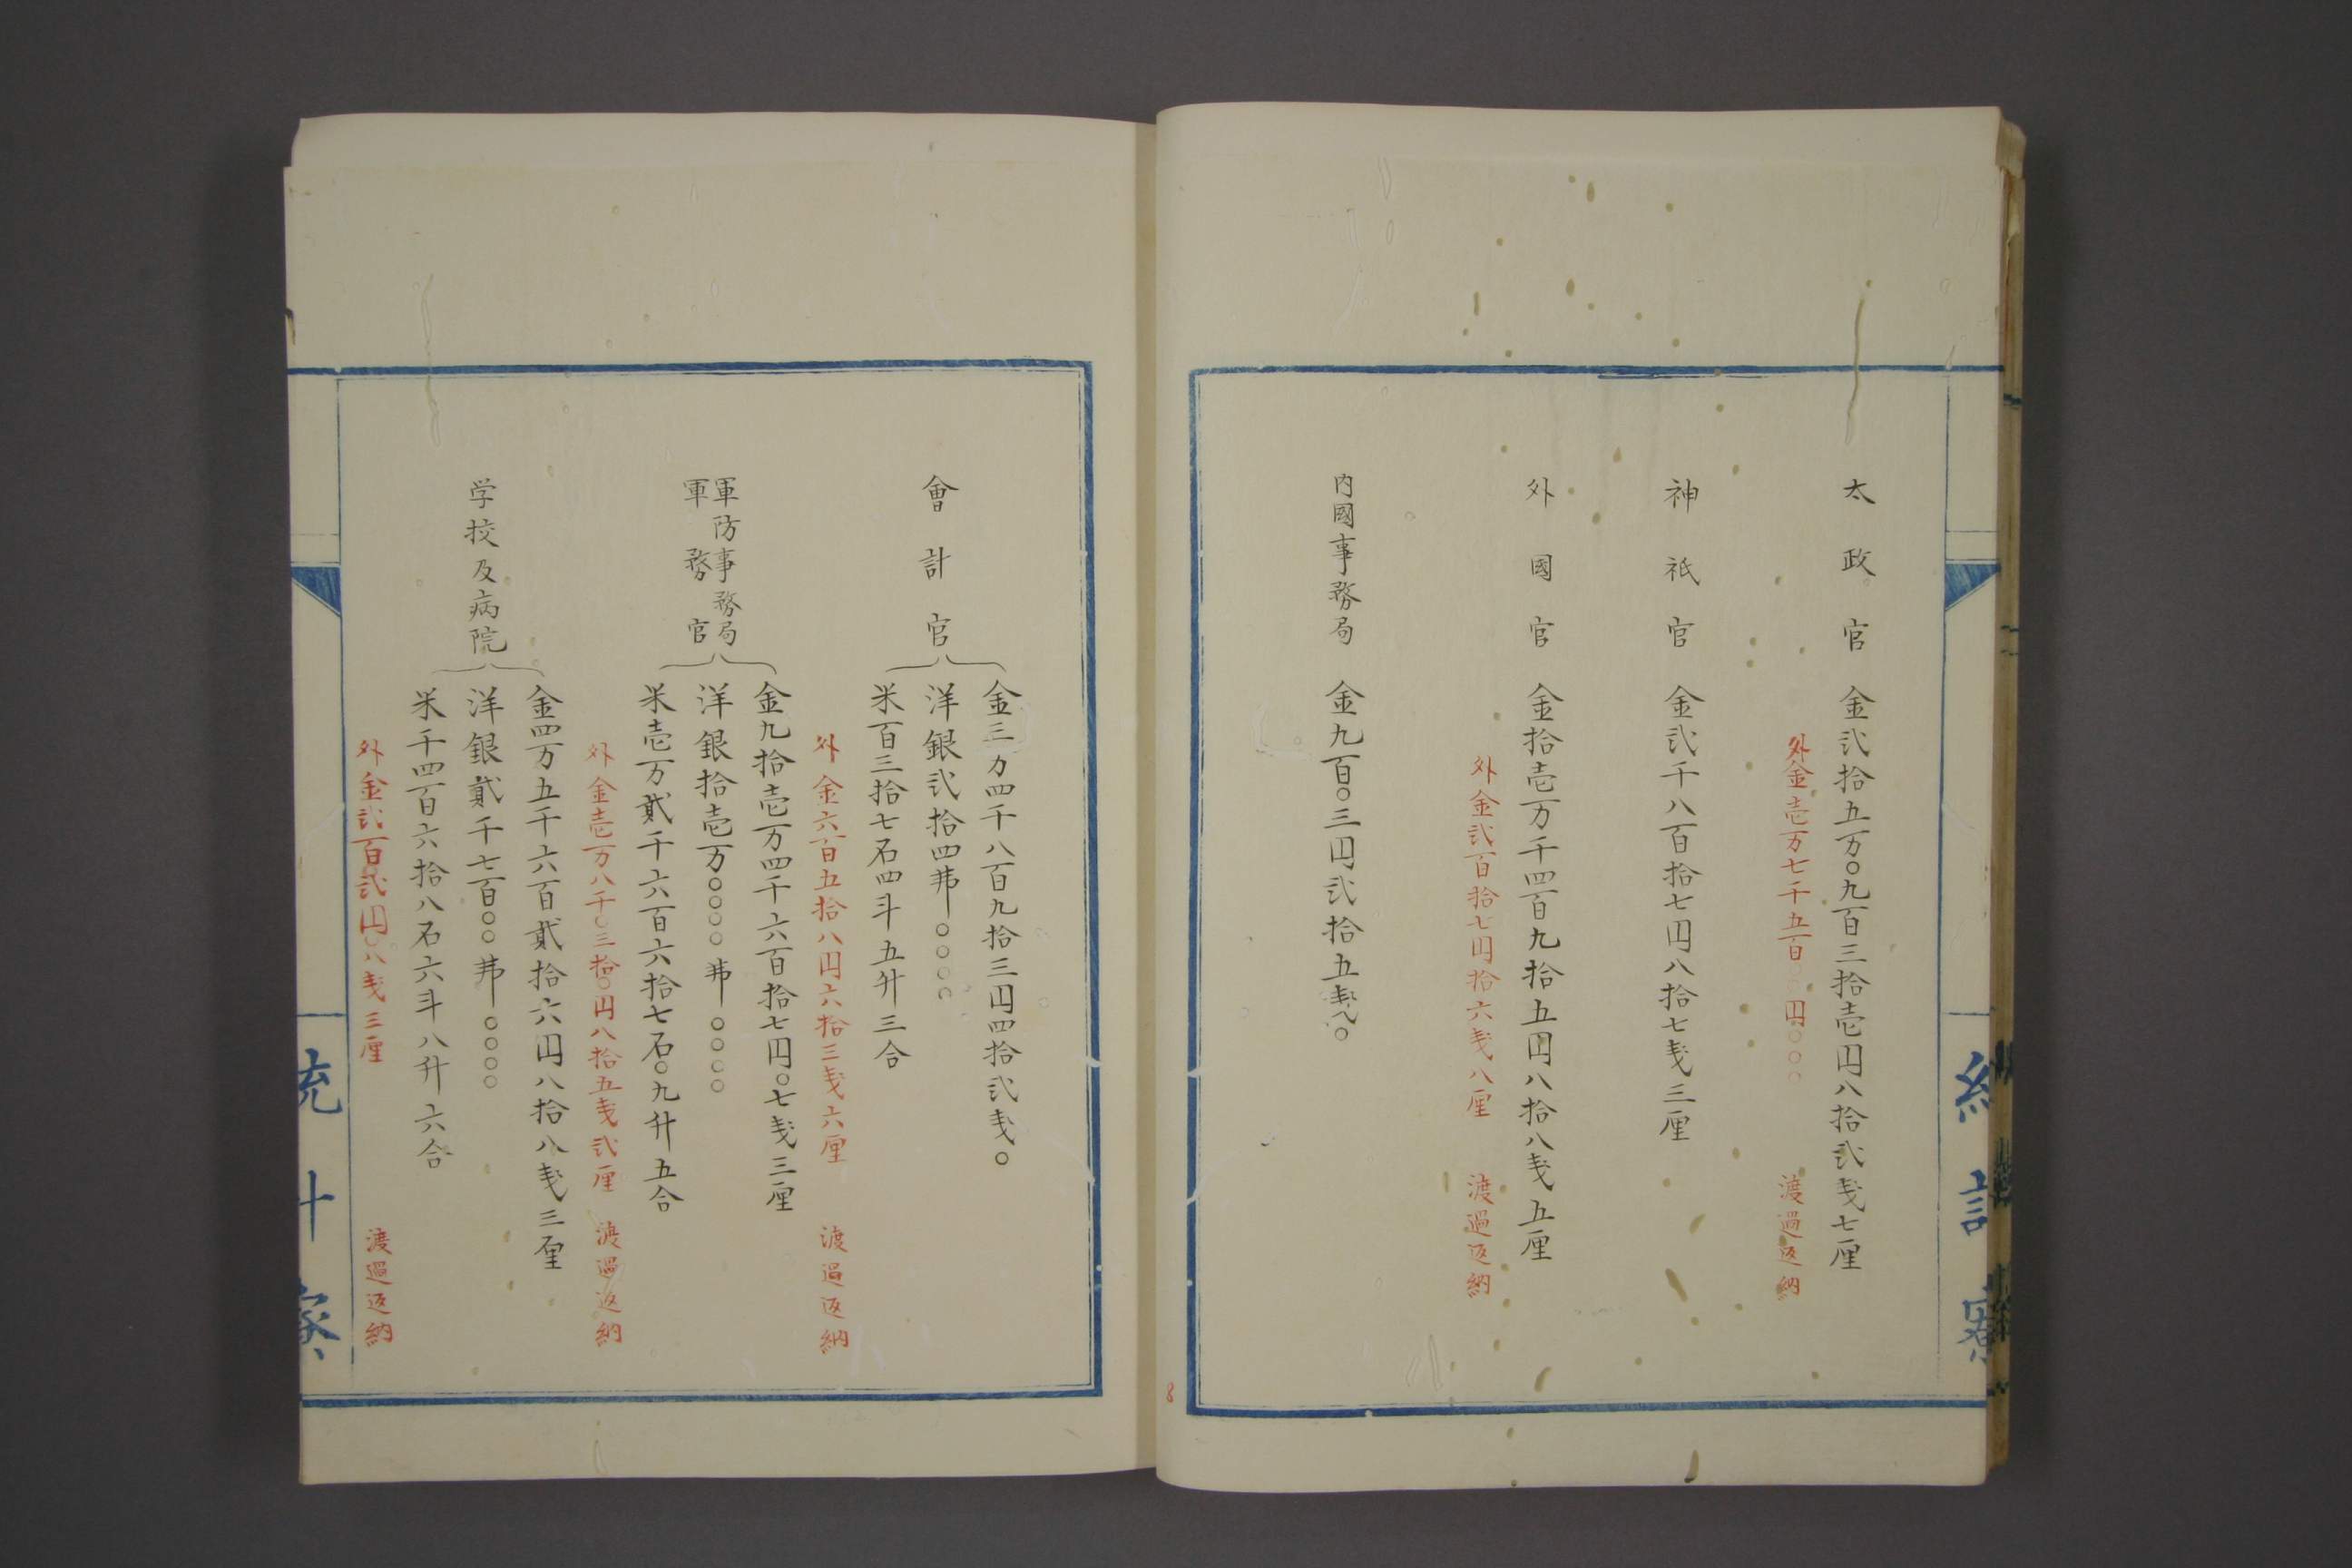 太政官 金弐拾五万〇九百三拾壱円八拾弐戋七厘
外金壱万七千五百〇〇円〇〇〇 渡過返納
神祇官 金弐千八百拾七円八拾七戋三厘
外國官 金拾壱万千四百九拾五円八拾八戋五厘
外金弐百拾七円拾六戋八厘 渡過返納
内國事務局 金九百〇三円弐拾五戋八〇
會計官
金三万四千八百九拾三円四拾弐戋〇
洋銀弐拾四弗〇〇〇〇
米百三拾七石四斗五升三合
外金六百五拾八円六拾三戋六厘 渡過返納
軍防事務局
軍務官
金九拾壱万四千六百拾七円〇七戋三厘
洋銀拾壱万〇〇〇〇弗〇〇〇〇
米壱万貳千六百六拾七石〇九升五合
外金壱万八千〇三拾〇円八拾五戋弐厘 渡過返納
学校及病院
金四万五千六百貳拾六円八拾八戋三厘
洋銀貳千七百〇〇弗〇〇〇〇
米千四百六拾八石六斗八升六合
外金弐百弐円〇八戋三厘 渡過返納
統計寮
8